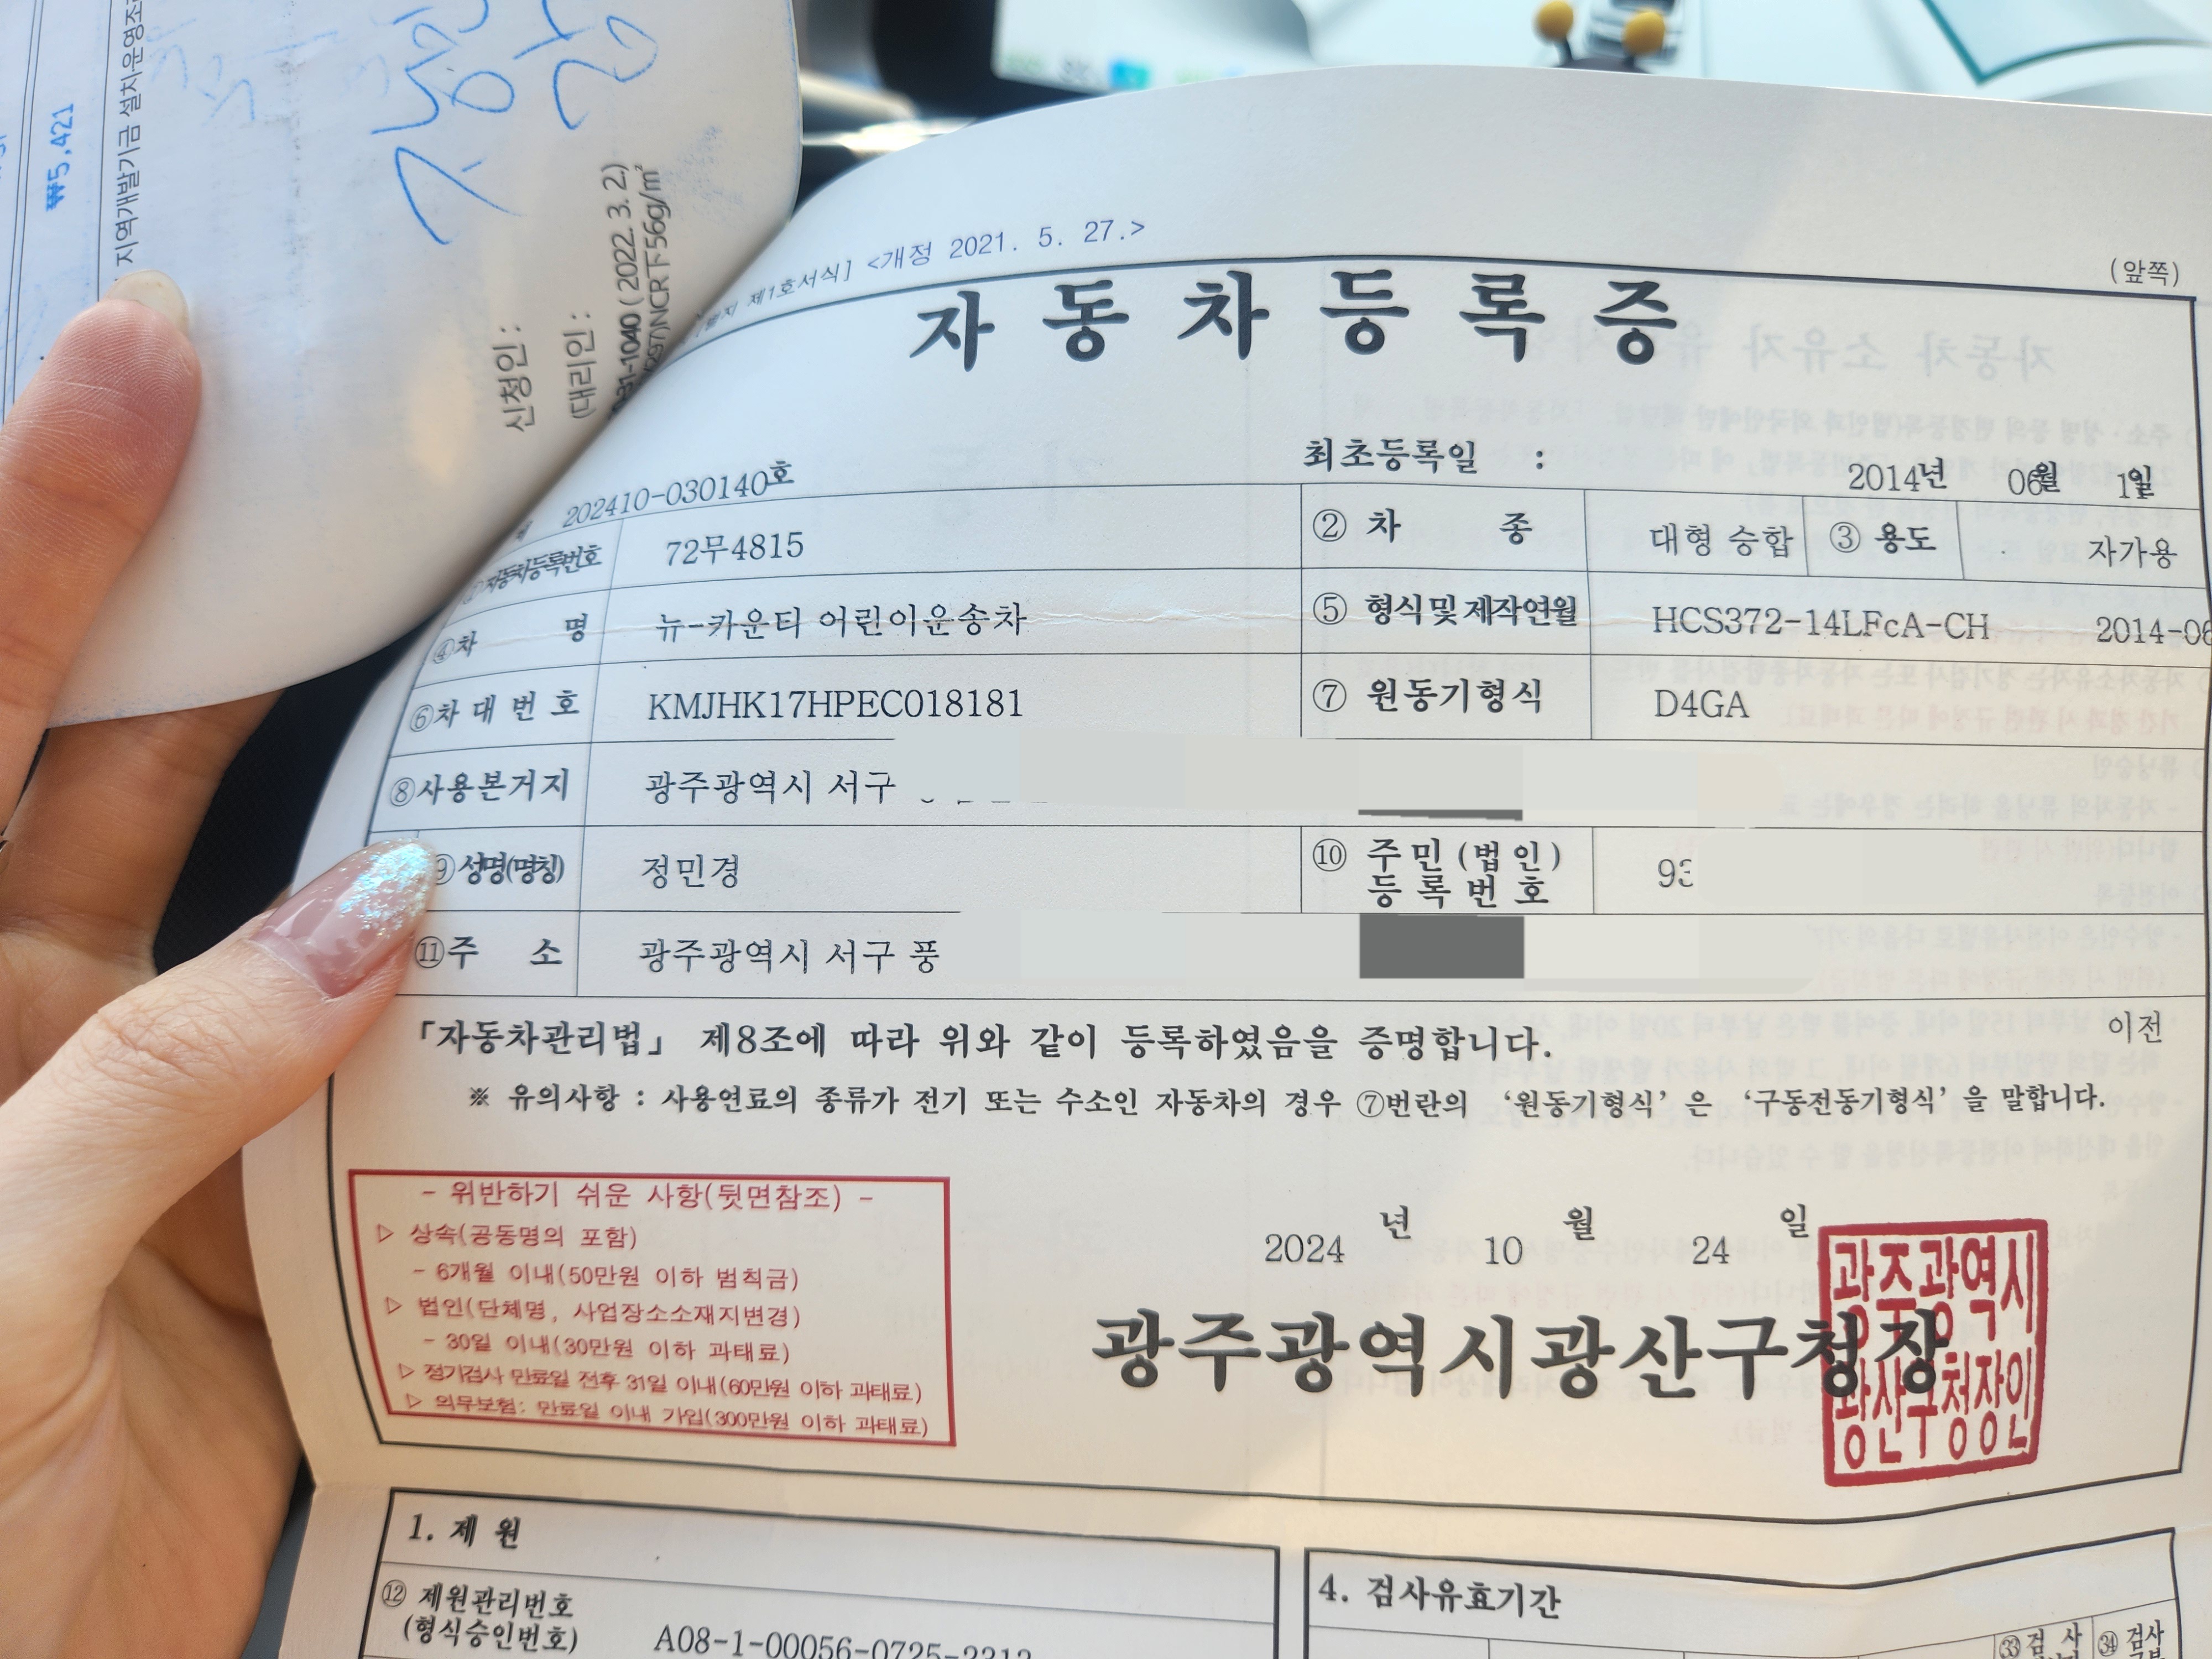 ₩5,421
지역개발기금 설치운영조
신청인 :
(대리인 :
(2022. 3. 2.)
NCR지56g/㎡
제1호서식] <개정 2021. 5. 27.>
(앞쪽)
자동차등록증
202410-030140호
최초등록일 : 2014년 06월 1일
①자동차등록번호 72무4815 ② 차 종 대형 승합 ③ 용도 자가용
④차 명 뉴-카운티 어린이운송차 ⑤ 형식및제작연월 HCS372-14LFcA-CH 2014-06
⑥차대번호 KMJHK17HPEC018181 ⑦ 원동기형식 D4GA
⑧사용본거지 광주광역시 서구
⑨성명(명칭) 정민경 ⑩ 주민(법인)
등록번호 93
⑪주 소 광주광역시 서구 풍
「자동차관리법」 제8조에 따라 위와 같이 등록하였음을 증명합니다. 이전
※ 유의사항 : 사용연료의 종류가 전기 또는 수소인 자동차의 경우 ⑦번란의 '원동기형식'은 '구동전동기형식'을 말합니다.
- 위반하기 쉬운 사항(뒷면참조) -
▷ 상속(공동명의 포함)
- 6개월 이내(50만원 이하 범칙금)
▷ 법인(단체명, 사업장소소재지변경)
- 30일 이내(30만원 이하 과태료)
▷ 정기검사 만료일 전후 31일 이내(60만원 이하 과태료)
▷ 의무보험: 만료일 이내 가입(300만원 이하 과태료)
2024 년 10 월 24 일
광주광역시광산구청장
광주광역시
광산구청장인
1. 제 원
⑫ 제원관리번호
(형식승인번호) A08-1-00056-0725-2312
4. 검사유효기간
㉝검 사
㉞검사